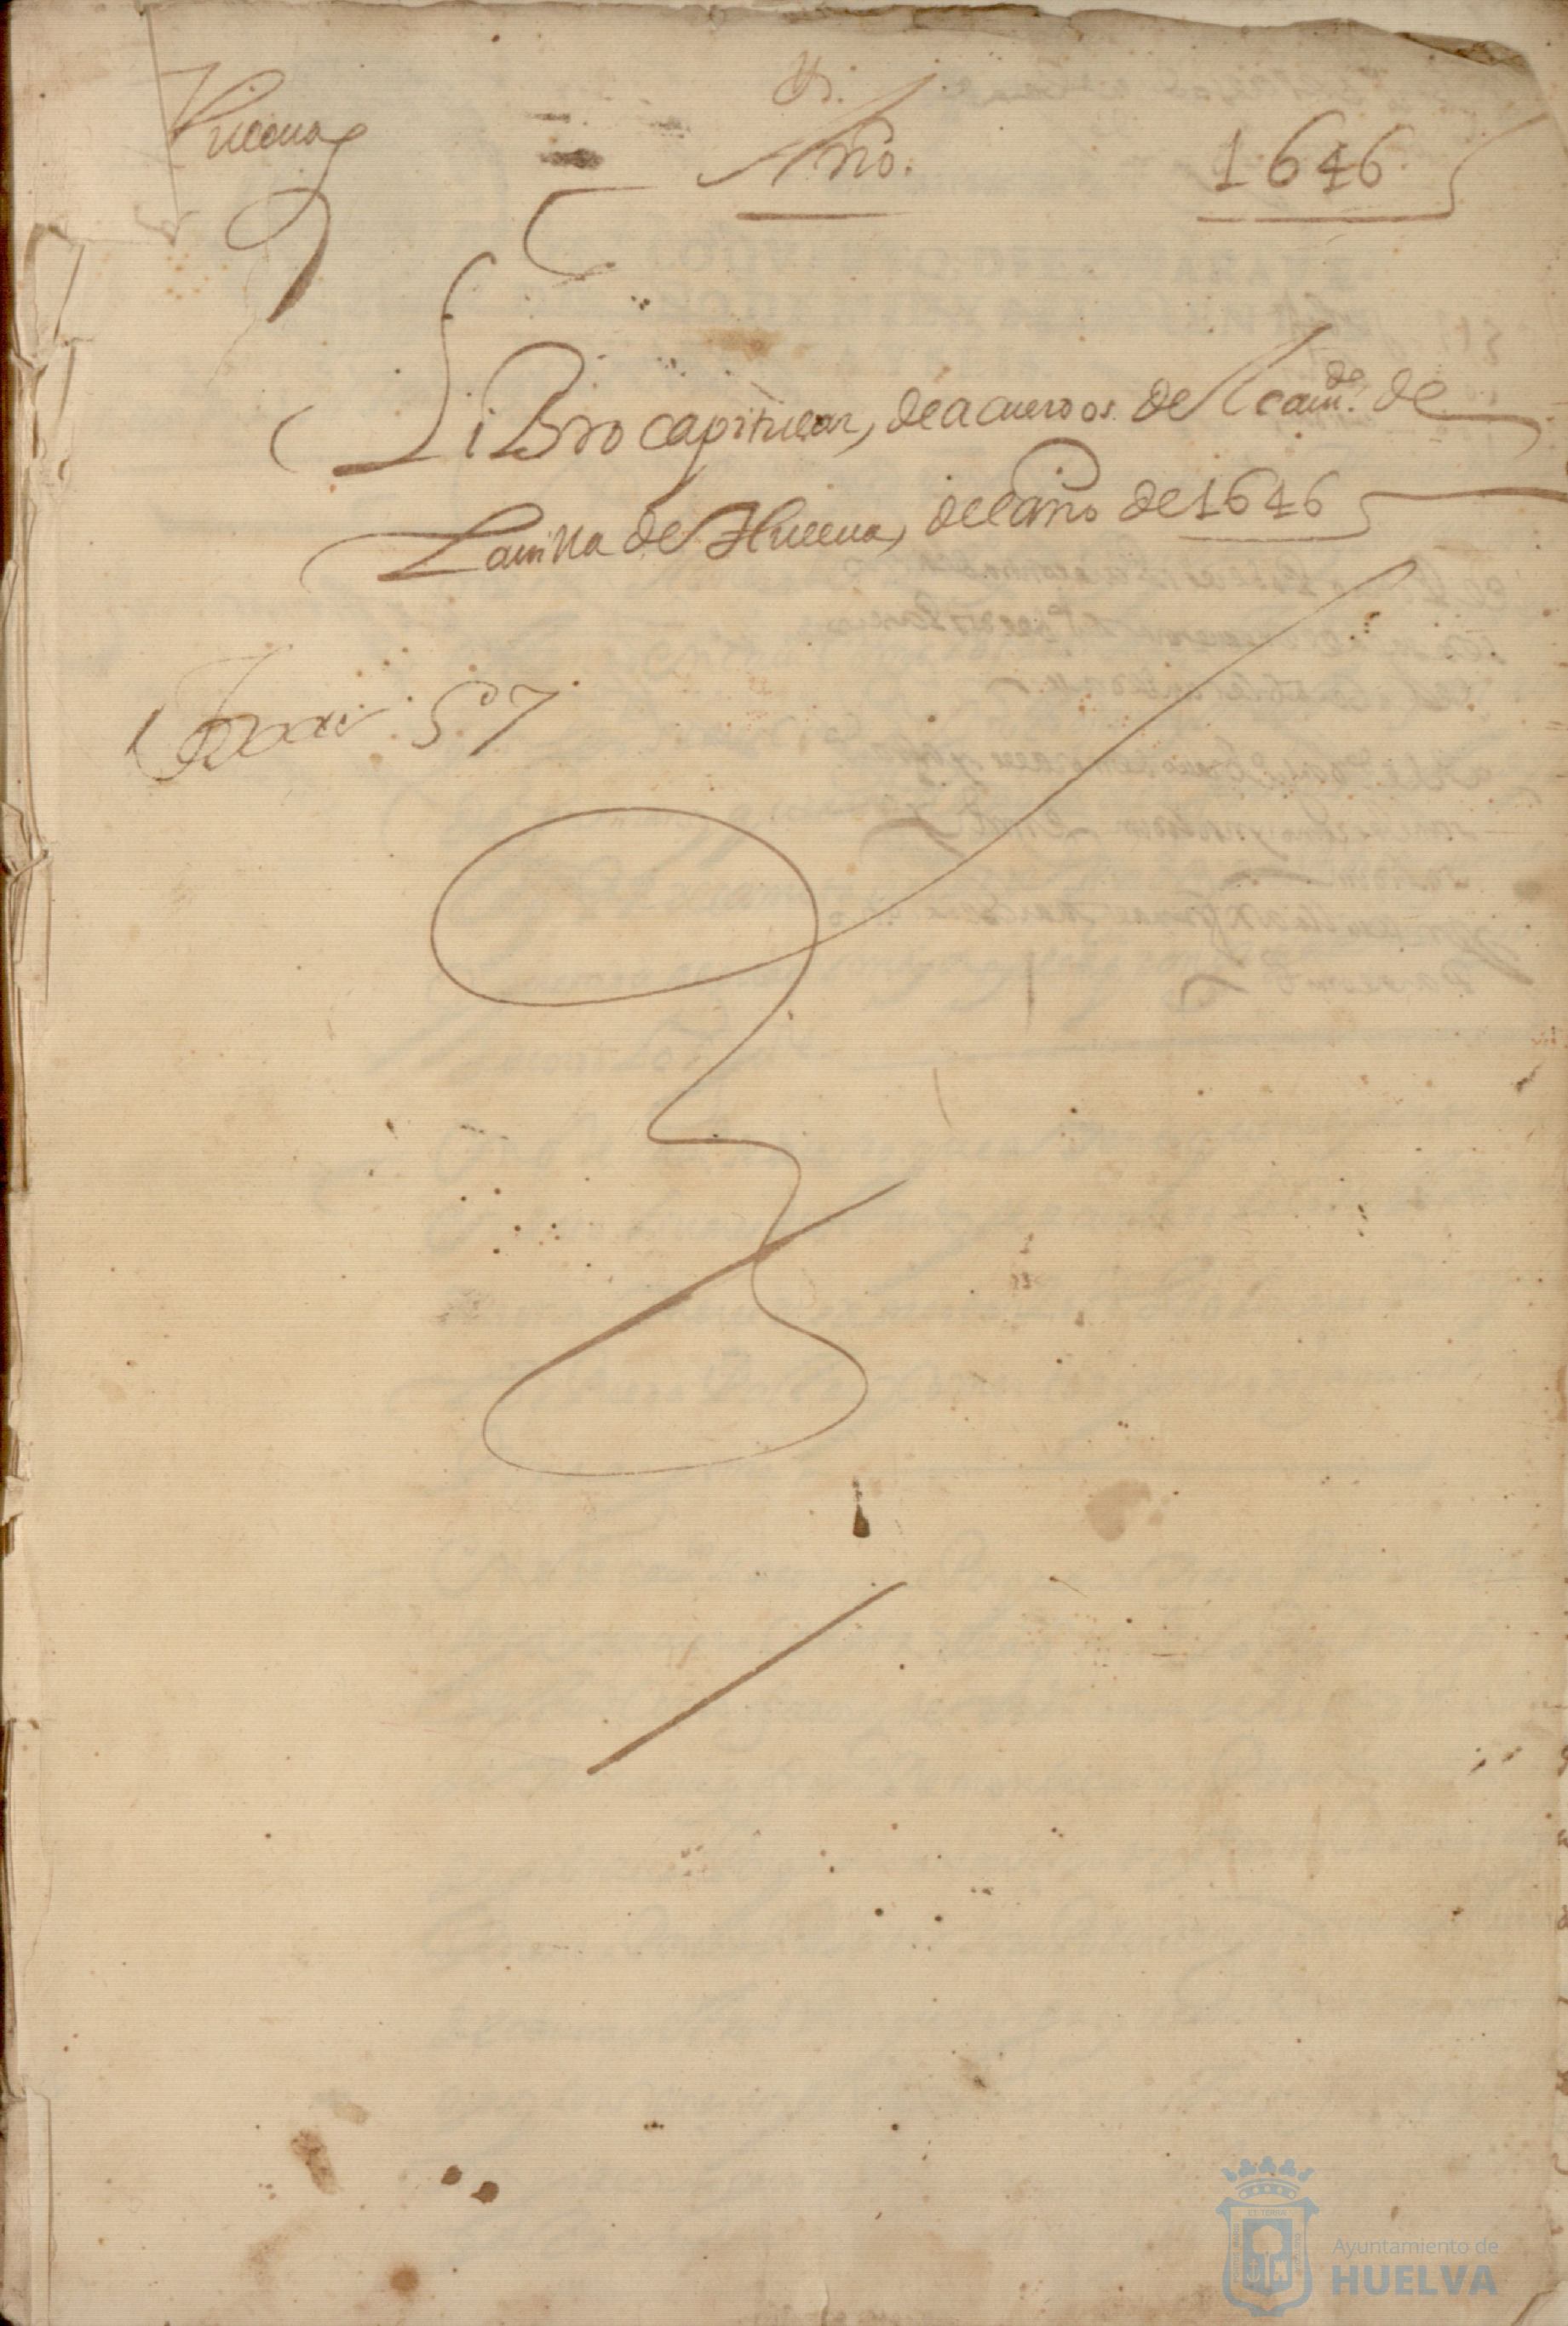 Huelva
Año. 1646
Libro capitular, de acuerdos del cauⁿ.ᵈᵒ de
la villa de Huelva, del año de 1646
57
Ayuntamiento de
HUELVA